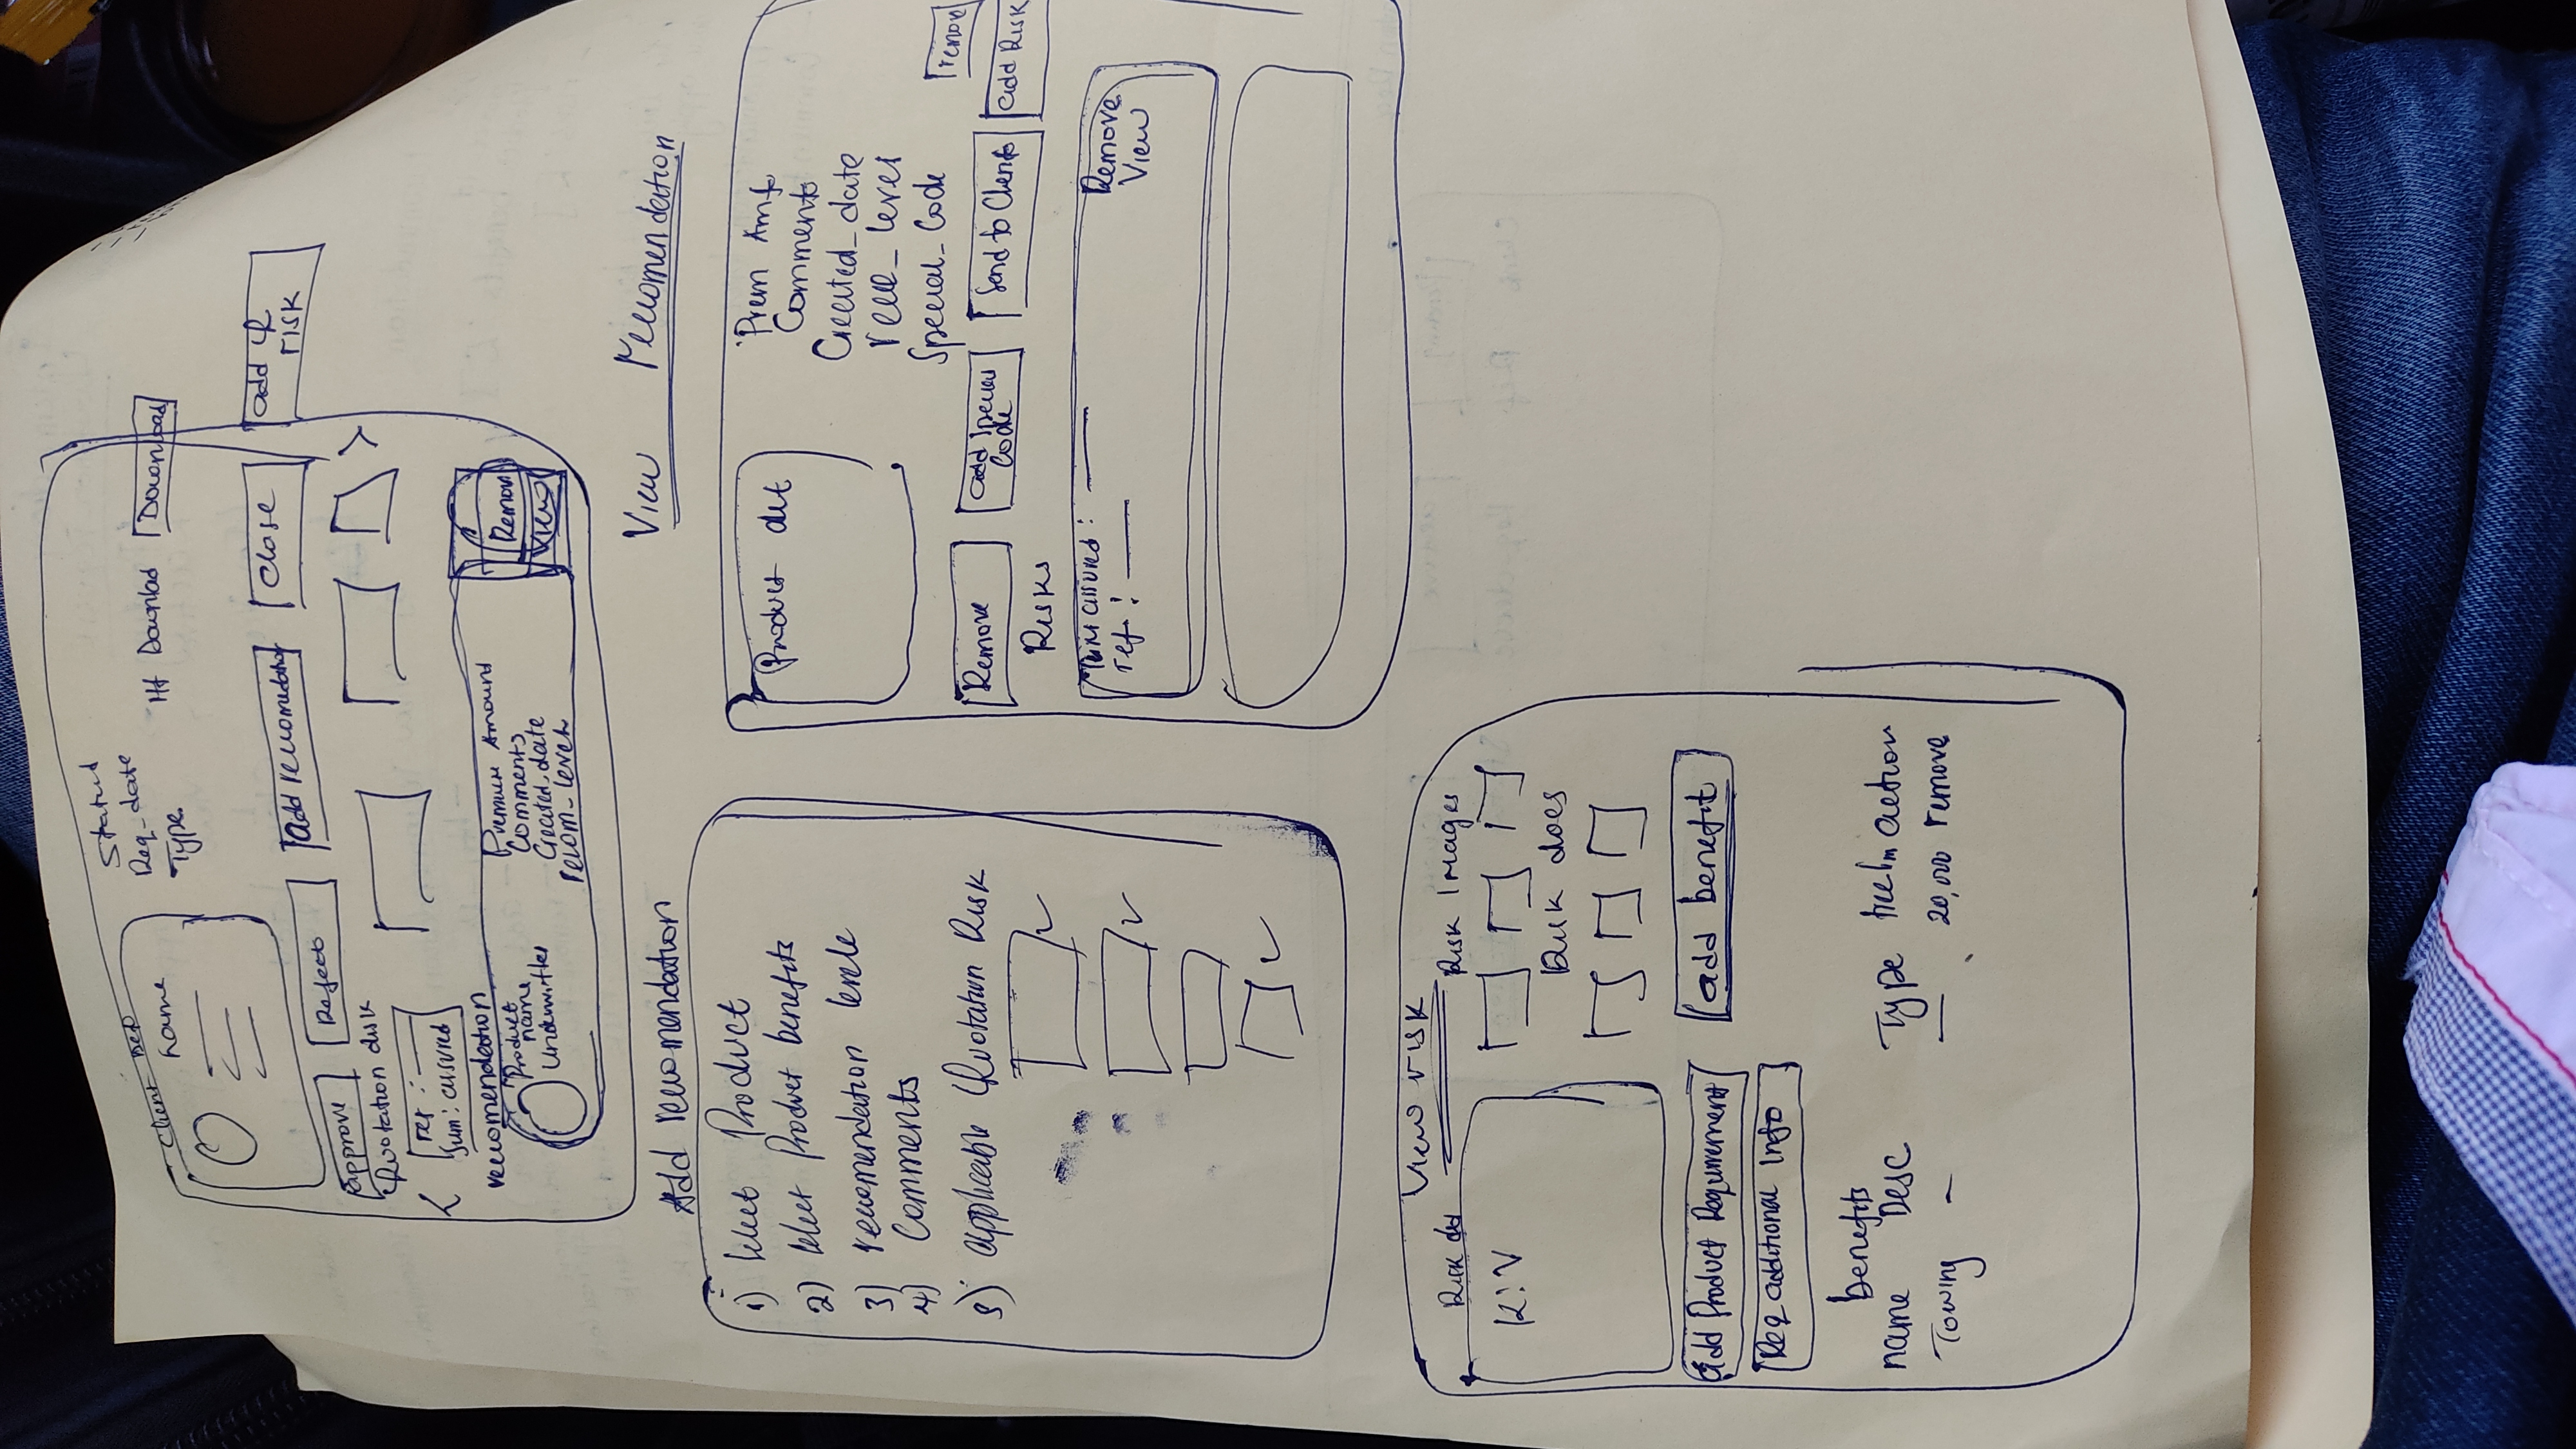 Client Dep
name
Status
Req-date
Type
Download
Download
approve
Reject
add recomedation
Close
add
risk
Quotation disk
ref :
Sum: assured
recomendation
Product
name
Underwriter
Premium Amount
Comments
Created_date
recom_level
Remove
View
Add recomendation
1) Select Product
2) Select Product benefits
3) recomendation levele
4) Comments
5) applicable Quotation Risk
View recomendation
Product det
Prem Amt
Comments
Created_date
reco_level
Special_Code
remove
Remove
add special
Code
Send to Client
add Risk
Risks
assured :
ref :
Remove
View
View risk
Risk det
K:V
Risk Images
Risk docs
add Product Requirement
add benefit
Req additional Info
benefits
name Desc Type action
Towing - — 20,000 remove